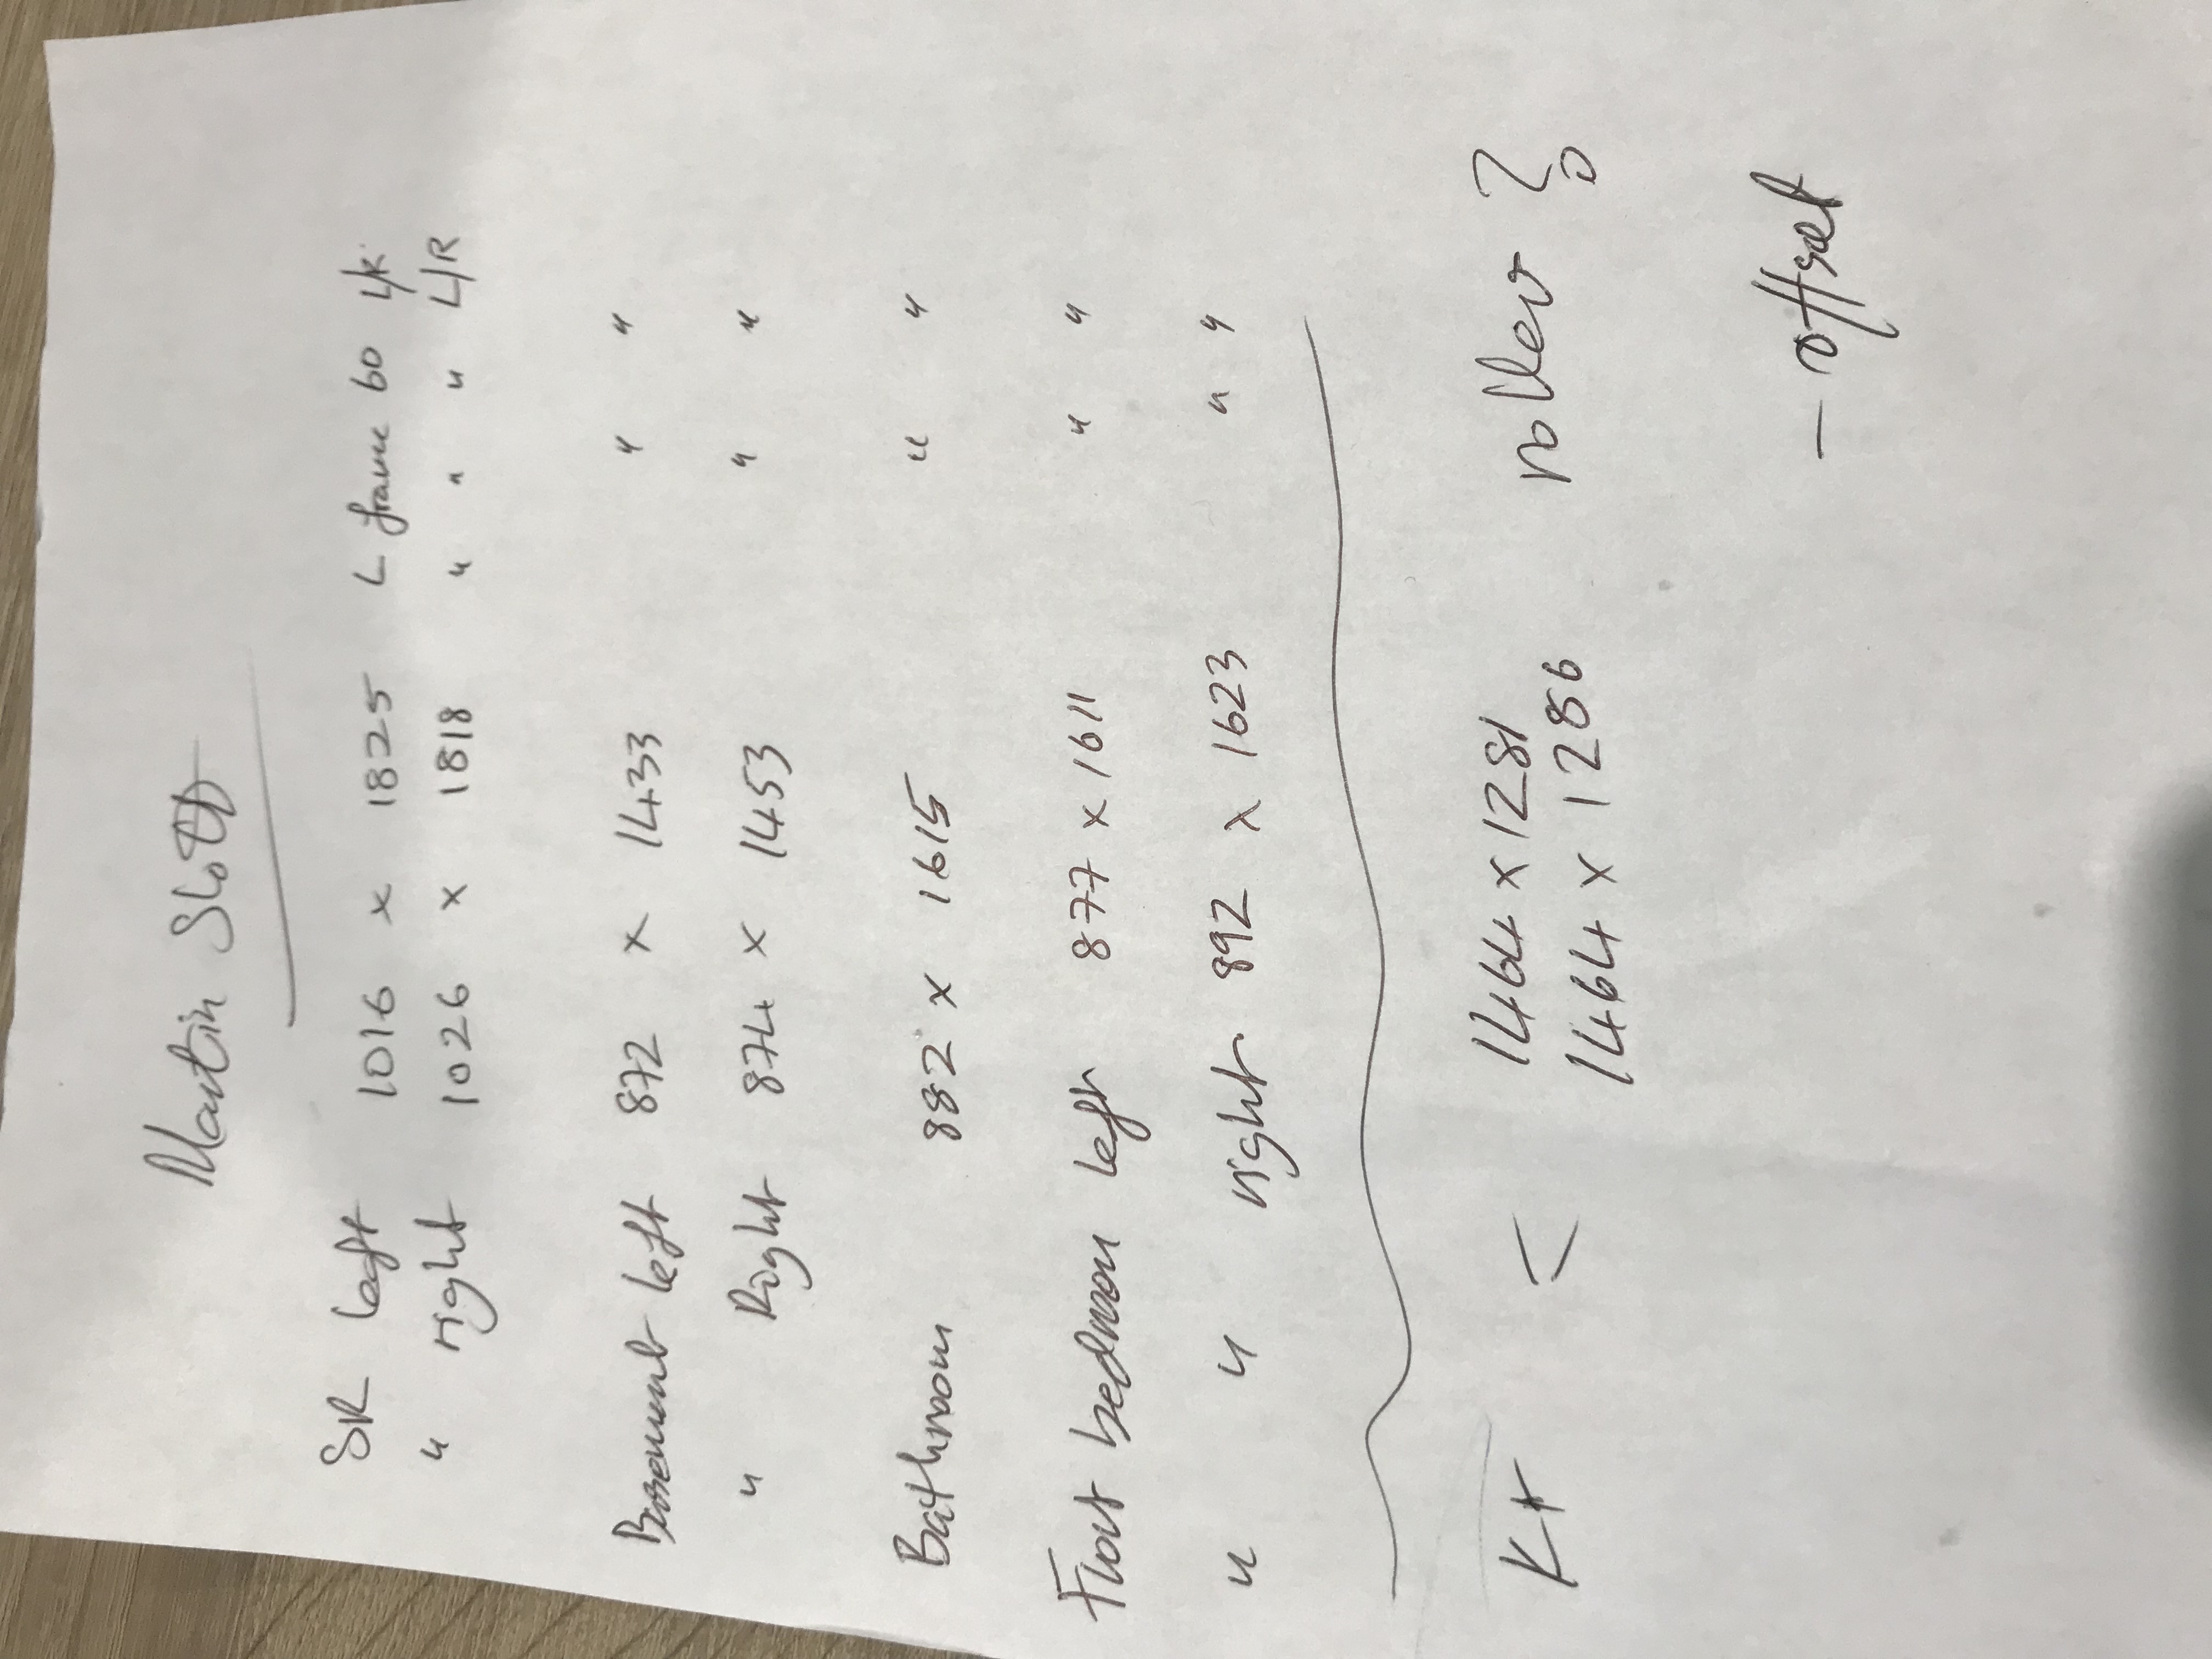 Martin Slott
SR left 1016 x 1825 L frame 60 L/R
" right 1026 x 1818 " " " L/R
Basement left 872 x 1433 " "
" Right 874 x 1453 " "
Bathroom 882 x 1615 " "
Front bedroom left 877 x 1611 " "
" " right 892 x 1623 " "
Kt < 1464 x 1281 roller ?
1464 x 1286
- offset